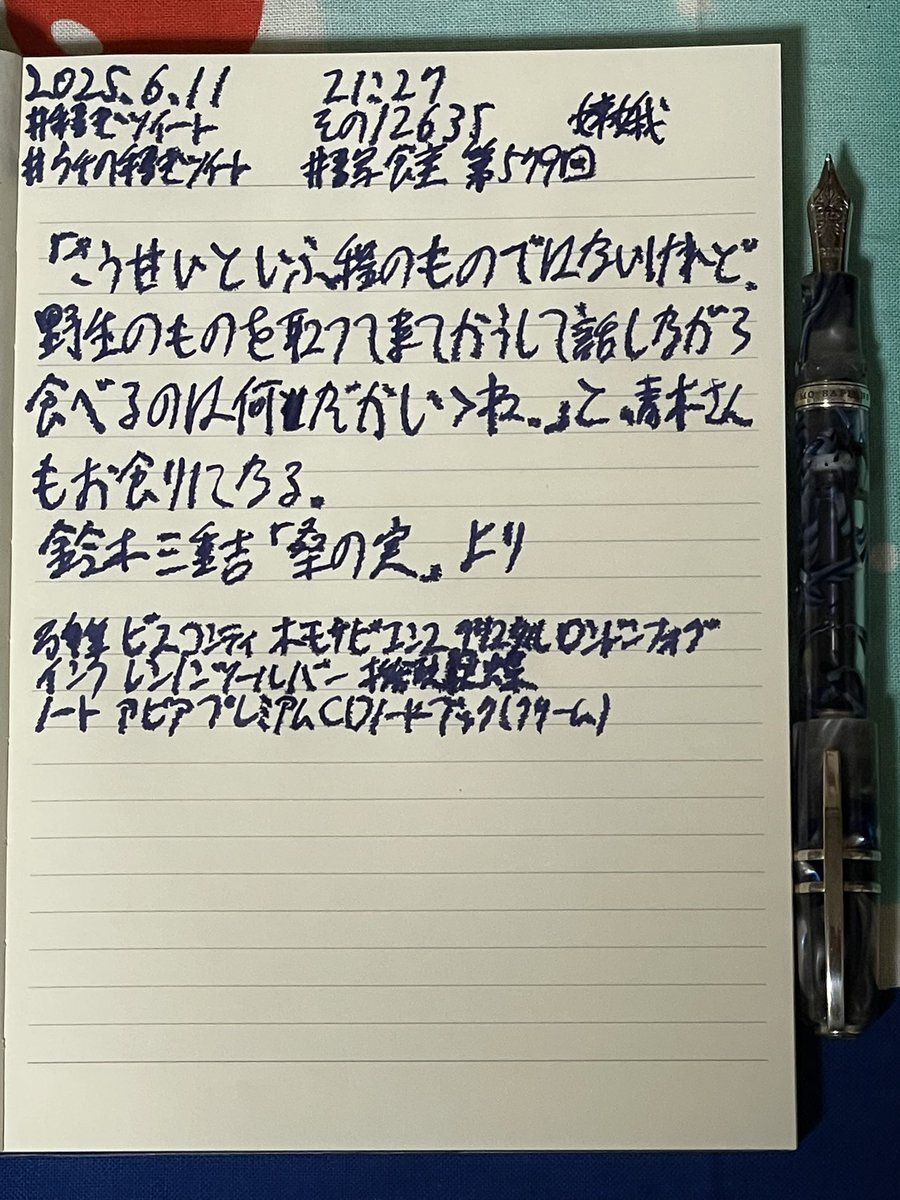 2025.6.11 21:27
#手書きツイート その12635 嫦娥
#うちの手書きツイート #문字食堂 第579回
「ぜいせいといふ程のものではないけれど、
野生のものを取つて来てかうして話しながら
食べるのは何だかいゝね。」と、青木さん
もお食りになる。
鈴木三重吉「桑の実」より
万年筆 ビスコンティ ホモサピエンス クリスタル ロンドンフォグ
インク レンノンツールバー
ノート アピアプレミアムCDノートブック(クリーム)